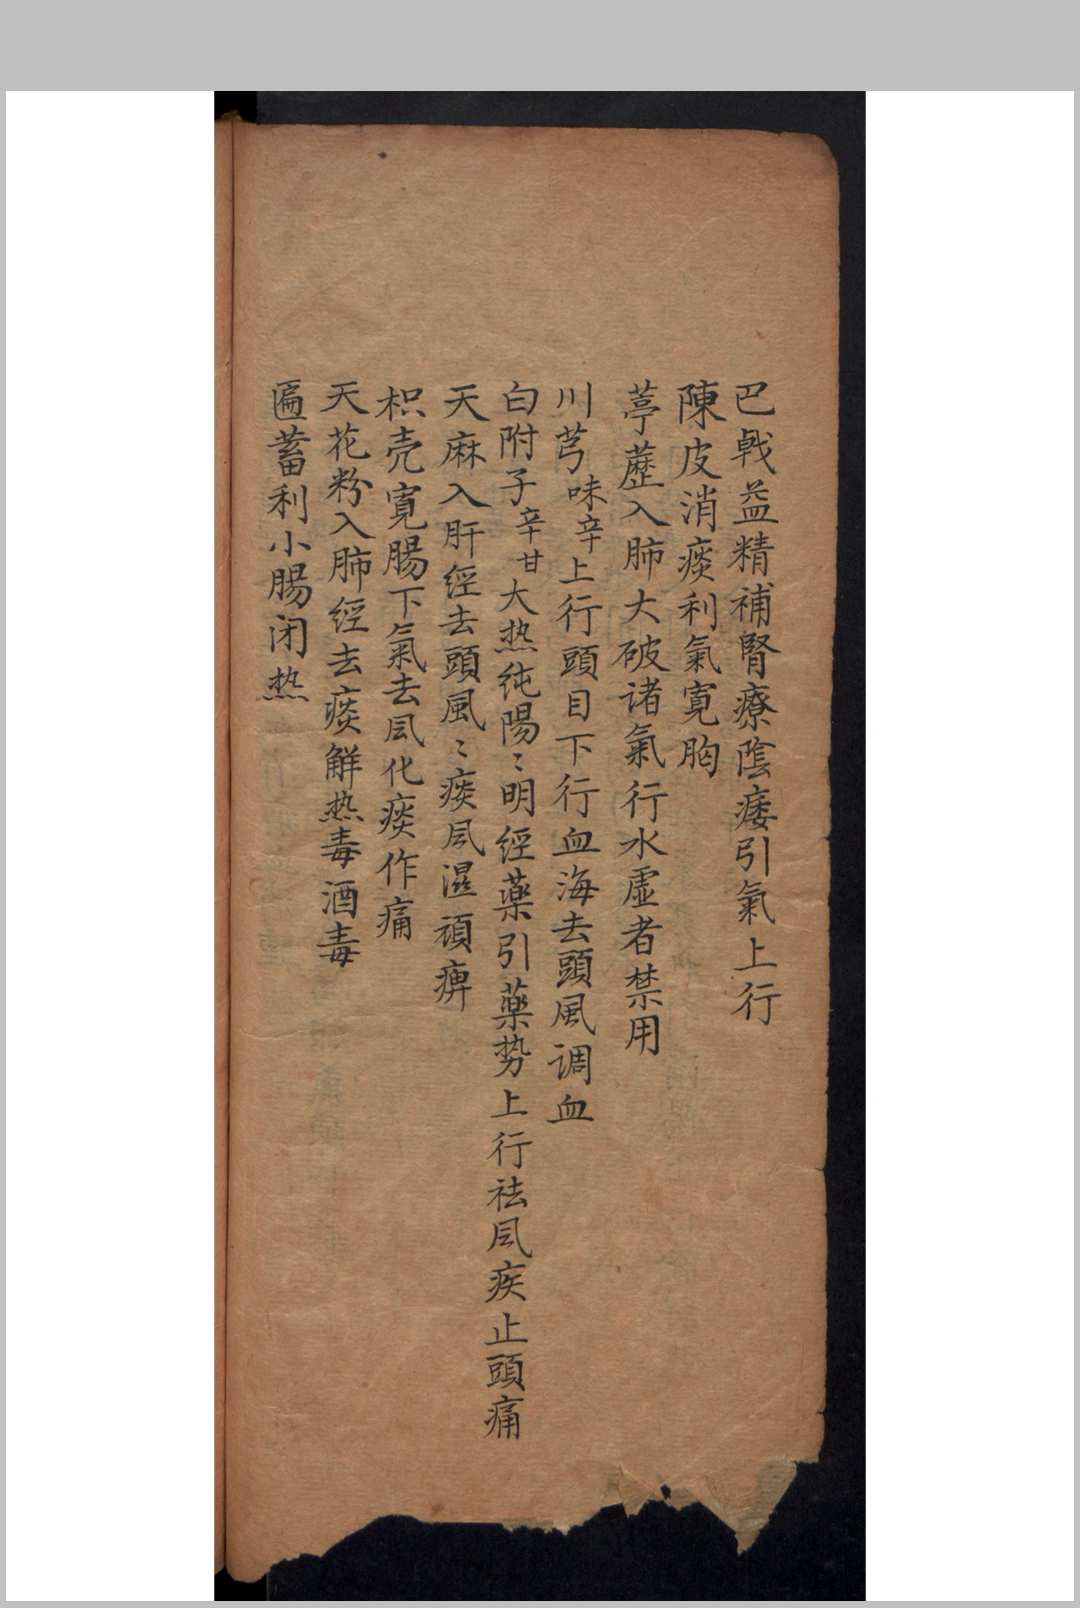 巴戟益精補腎療陰痿引氣上行
陳皮消痰利氣寛胸
葶藶入肺大破诸氣行水虛者禁用
川芎味辛上行頭目下行血海去頭風调血
白附子辛甘大热純陽〻明經藥引藥势上行祛凨疾止頭痛
天麻入肝經去頭風〻痰凨濕頑痹
枳壳寛腸下氣去凨化痰作痛
天花粉入肺經去痰解热毒酒毒
匾蓄利小腸闭热